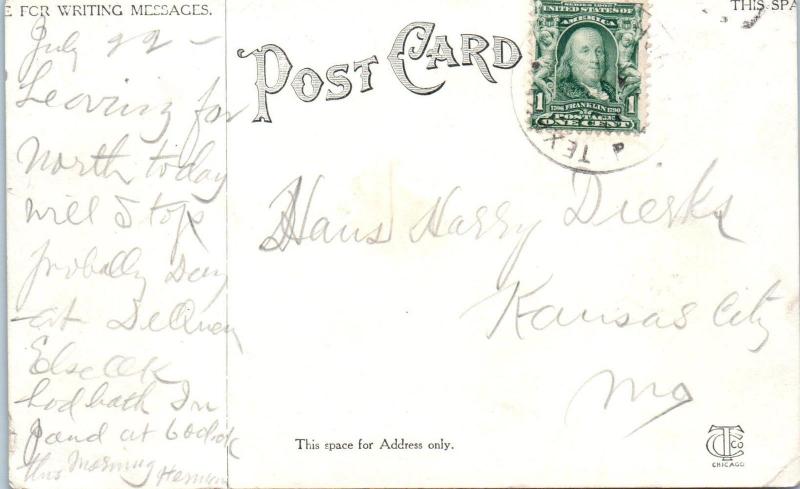 E FOR WRITING MESSAGES.
THIS SPA
POST CARD
SERIES 1902
UNITED STATES OF
AMERICA
1706 FRANKLIN 1790
POSTAGE
1 ONE CENT 1
TEX
July 22 -
Leaving for
North today
will Stop
probally Day
at DeQueen
Else OK
had bath In
Pond at 6 oclock
this Morning Herman
Hans Harry Dierks
Kansas City
Mo
This space for Address only.
CT CO
CHICAGO